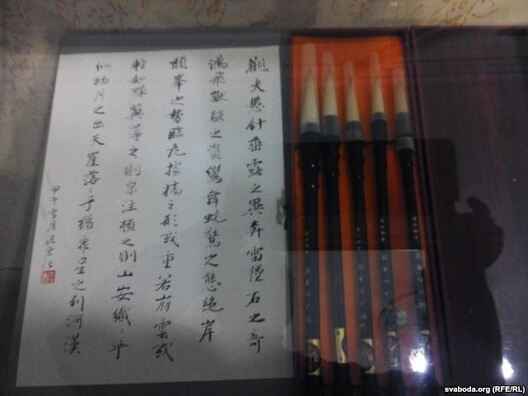 觀夫懸針垂露之異奔雷墜石之奇
鴻飛獸駭之資鸞舞蛇驚之態絕岸
頹峯之勢臨危據槁之形或重若崩雲或
輕如蟬翼導之則泉注頓之則山安纖〻乎
似初月之出天崖落〻乎猶眾星之列河漢
甲午
svaboda.org (RFE/RL)